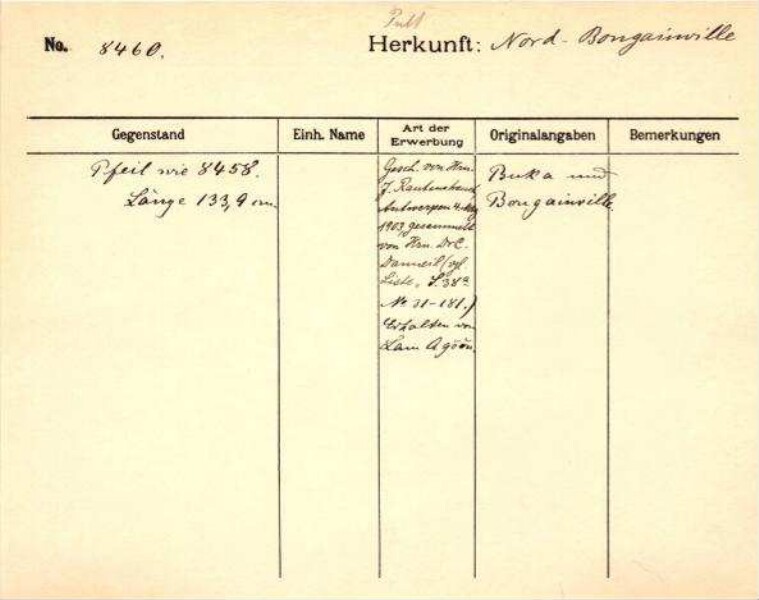 No. 8460.
Herkunft: Nord-Bougainville
Gegenstand
Einh. Name
Art der
Erwerbung
Originalangaben
Bemerkungen
Pfeil wie 8458.
Länge 133,9 cm.
Gesch. von Hrn.
J. Rautenstrauch
Antwerpen 4. May
1903, gesammelt
von Hrn. Dr C.
Danneil (vgl.
Liste, S. 38a
No 31-181.)
Erhalten von
Lam
Buka und
Bougainville.